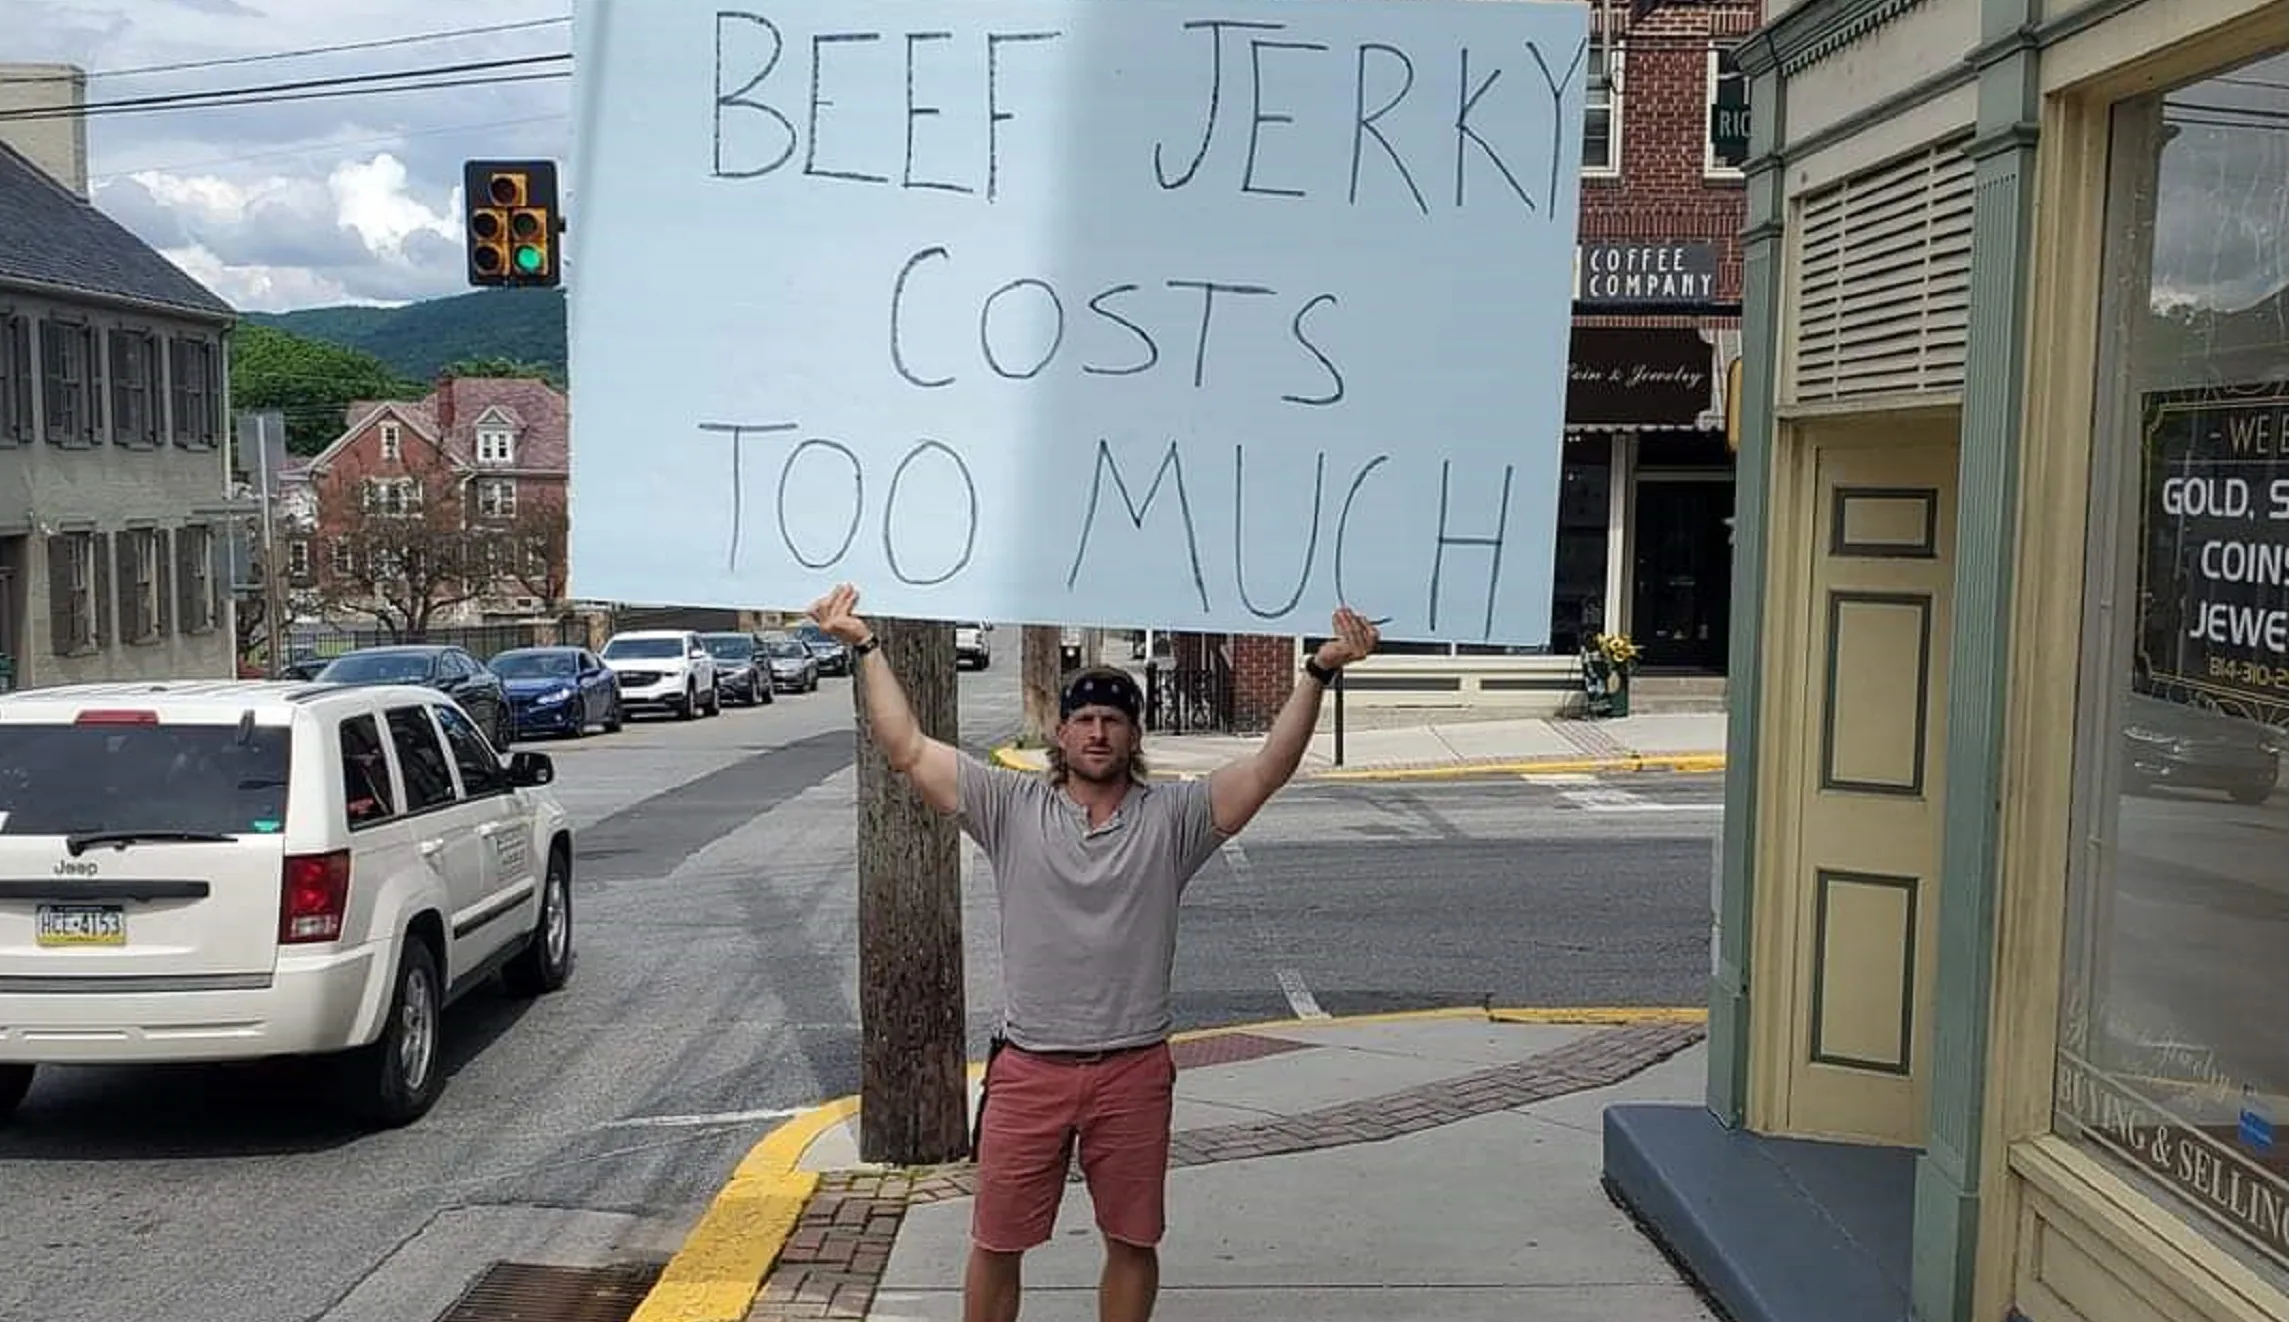 BEEF JERKY
COSTS
TOO MUCH
RIC
COFFEE
COMPANY
Coin & Jewelry
- WE B
GOLD, S
COINS
JEWE
814-310-2
BUYING & SELLING
Jeep
HCE-4153